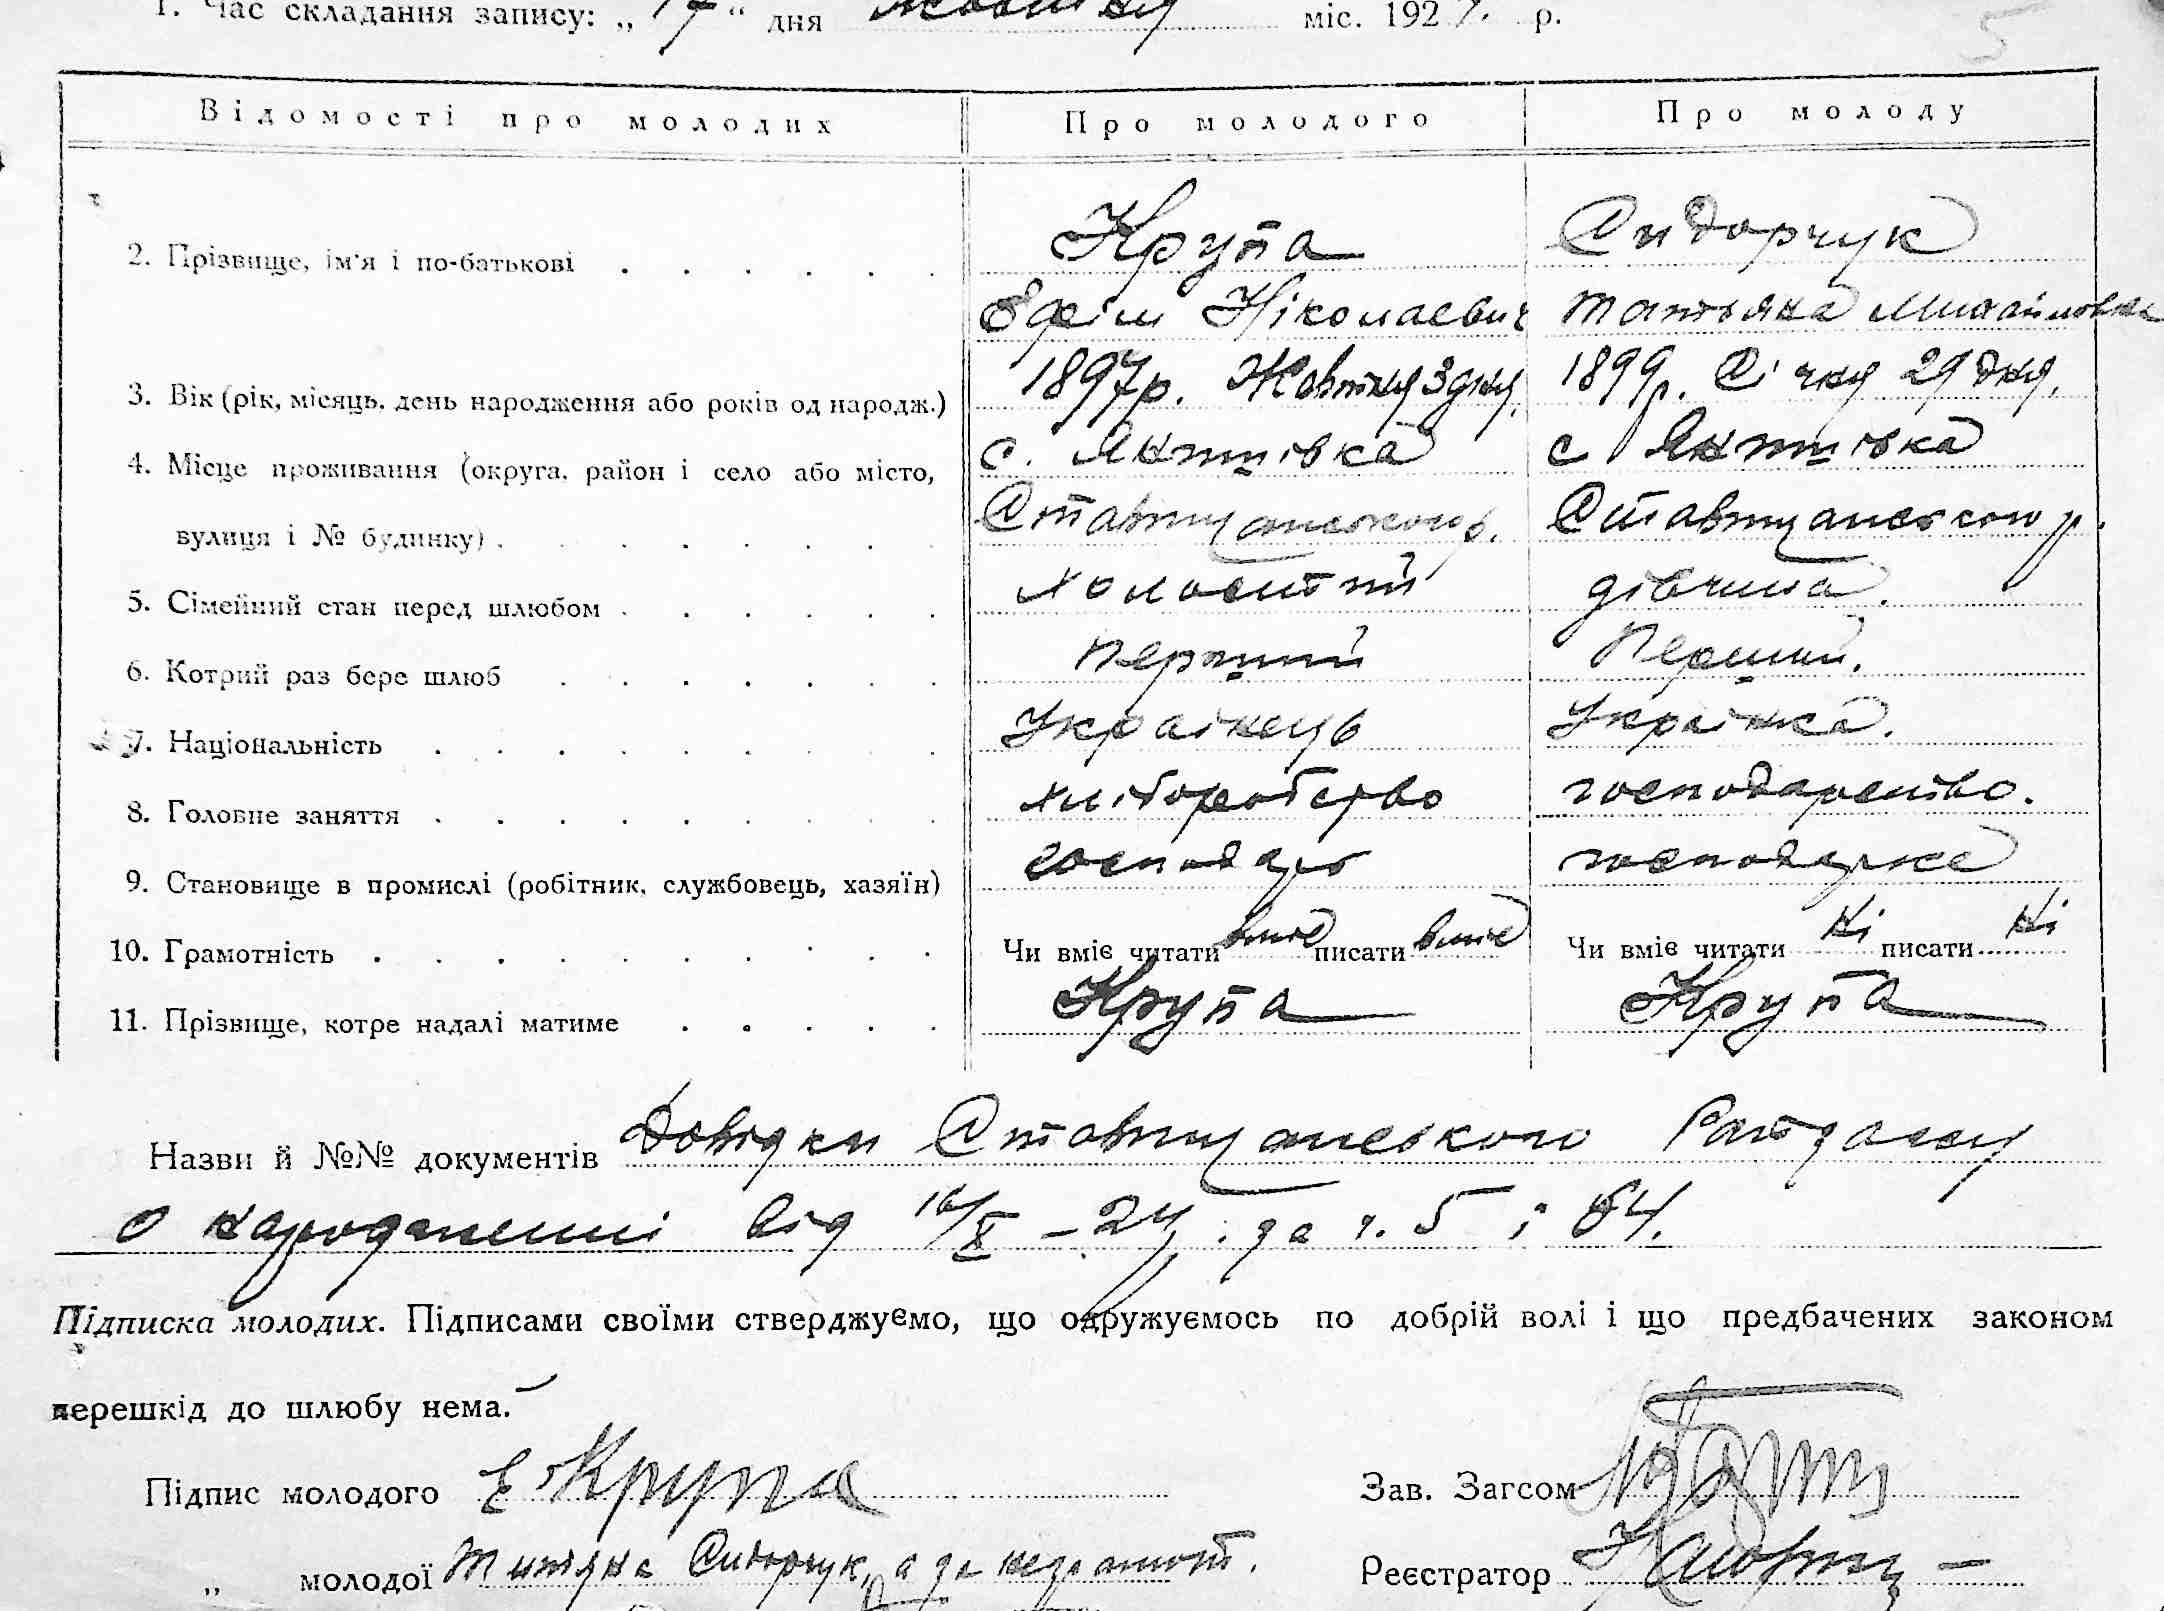 1. Час складання запису: „17“ дня Жовтня міс. 192 р.
5
Відомості про молодих Про молодого Про молоду
2. Прізвище, ім'я і по-батькові Крупа Сидорчук
Ефім Ніколаевич Татьяна Михайловна
3. Вік (рік, місяць, день народження або років од народж.) 1897р. Жовтня 3 дня, 1899р. Січня 29 дня.
4. Місце проживання (округа, район і село або місто, с. Янишівка с Янишівка
вулиця і № будинку) Ставищанського р. Ставищанського р.
5. Сімейний стан перед шлюбом холостий дівчина.
6. Котрий раз бере шлюб перший Перший.
7. Національність Украінець Украінка.
8. Головне заняття хліборобство господарство.
9. Становище в промислі (робітник, службовець, хазяїн) господарь господарка
10. Грамотність Чи вміє читати вміє писати вміє Чи вміє читати Ні писати Ні
11. Прізвище, котре надалі матиме Крупа Крупа
Назви й №№ документів Довідки Ставищанського
о народженні від 16/X – 24 за ч. 5 і 64.
Підписка молодих. Підписами своїми стверджуємо, що одружуємось по добрій волі і що предбачених законом
перешкід до шлюбу нема.
Підпис молодого Е Крупа Зав. Загсом
„ молодої Титяна Сидорчук, а за неграмот. Реєстратор